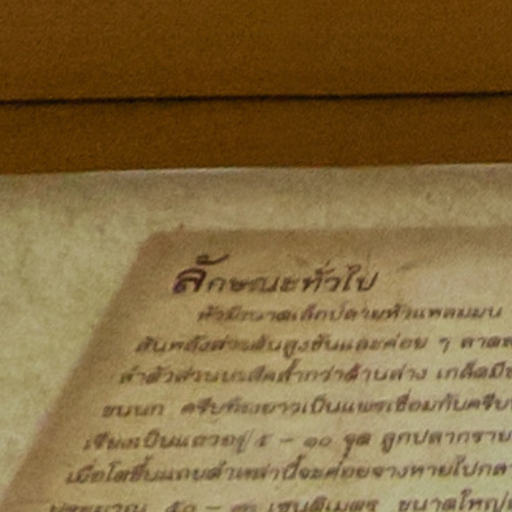 ลักษณะทั่วไป
หัวมีขนาดเล็กปลายหัวแหลมมน
สันหลังส่วนต้นสูงชันและค่อย ๆ ลาดล
ลำตัวส่วนบนสีคล้ำกว่าด้านล่าง เกล็ดมี
ขนนก ครีบท้องยาวเป็นแพรเชื่อมกับครีบ
เรียงเป็นแถวอยู่ ๕ - ๑๐ จุด ลูกปลากราย
เมื่อโตขึ้นแถบดำเหล่านี้จะค่อยจางหายไปกลา
ประมาณ - เซนติเมตร ขนาดใหญ่